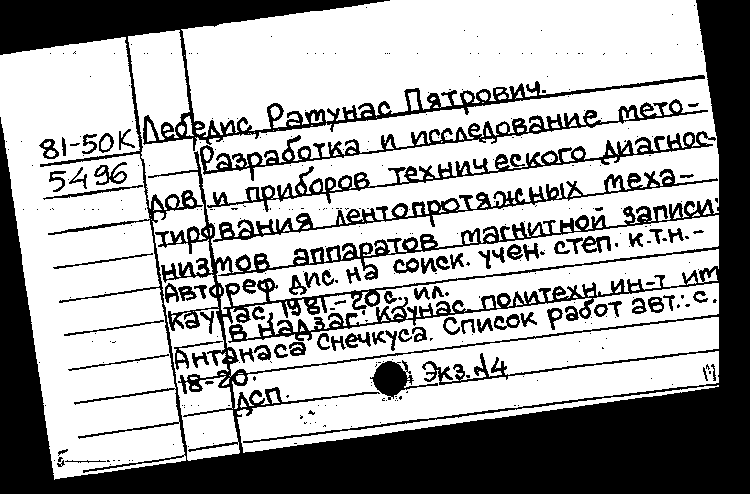 Лебедис, Ратунас Пятрович.
81-50К
5496
Разработка и исследование мето-
дов и приборов технического диагнос-
тирования лентопротяжных меха-
низмов аппаратов магнитной записи:
Автореф. дис. на соиск. учен. степ. к.т.н.-
Каунас, 1981.-20с., ил.
В надзаг.: Каунас. политехн. ин-т им
Антанаса Снечкуса. Список работ авт.: с.
18-20.
Экз.№4
ДСП.